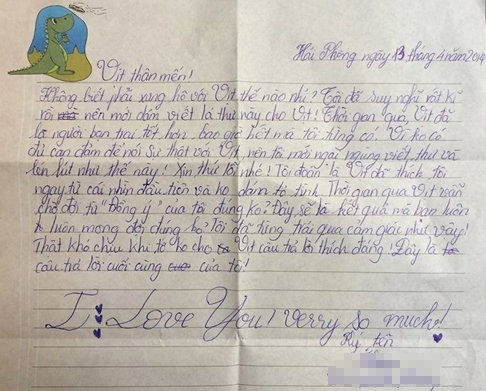 Hải Phòng ngày 13 tháng 4 năm 2014
Vịt thân mến!
Không biết phải xưng hô với Vịt thế nào nhỉ? Tớ đã suy nghĩ rất kĩ
rồi nên mới dám viết lá thư này cho Vịt! Thời gian qua, Vịt đã
là người bạn trai tốt hơn bao giờ hết mà tôi từng có! Vì ko có
đủ can đảm để nói sự thật với Vịt, nên tôi mới ngại ngùng viết thư và
lén lút như thế này! Xin thứ lỗi nhé! Tôi đoán là Vịt đã thích tôi
ngay từ cái nhìn đầu tiên và ko dám tỏ tình. Thời gian qua Vịt vẫn
chờ đợi từ "Đồng ý" của tôi đúng ko? Đây sẽ là kết quả mà bạn luôn
luôn mong đợi đúng ko? Tôi đã từng trải qua cảm giác như vậy!
Thật khó chịu khi tớ ko cho Vịt câu trả lời thích đáng! Đây là
câu trả lời cuối cùng của tôi!
I Love You! Verry so much!
Ký tên